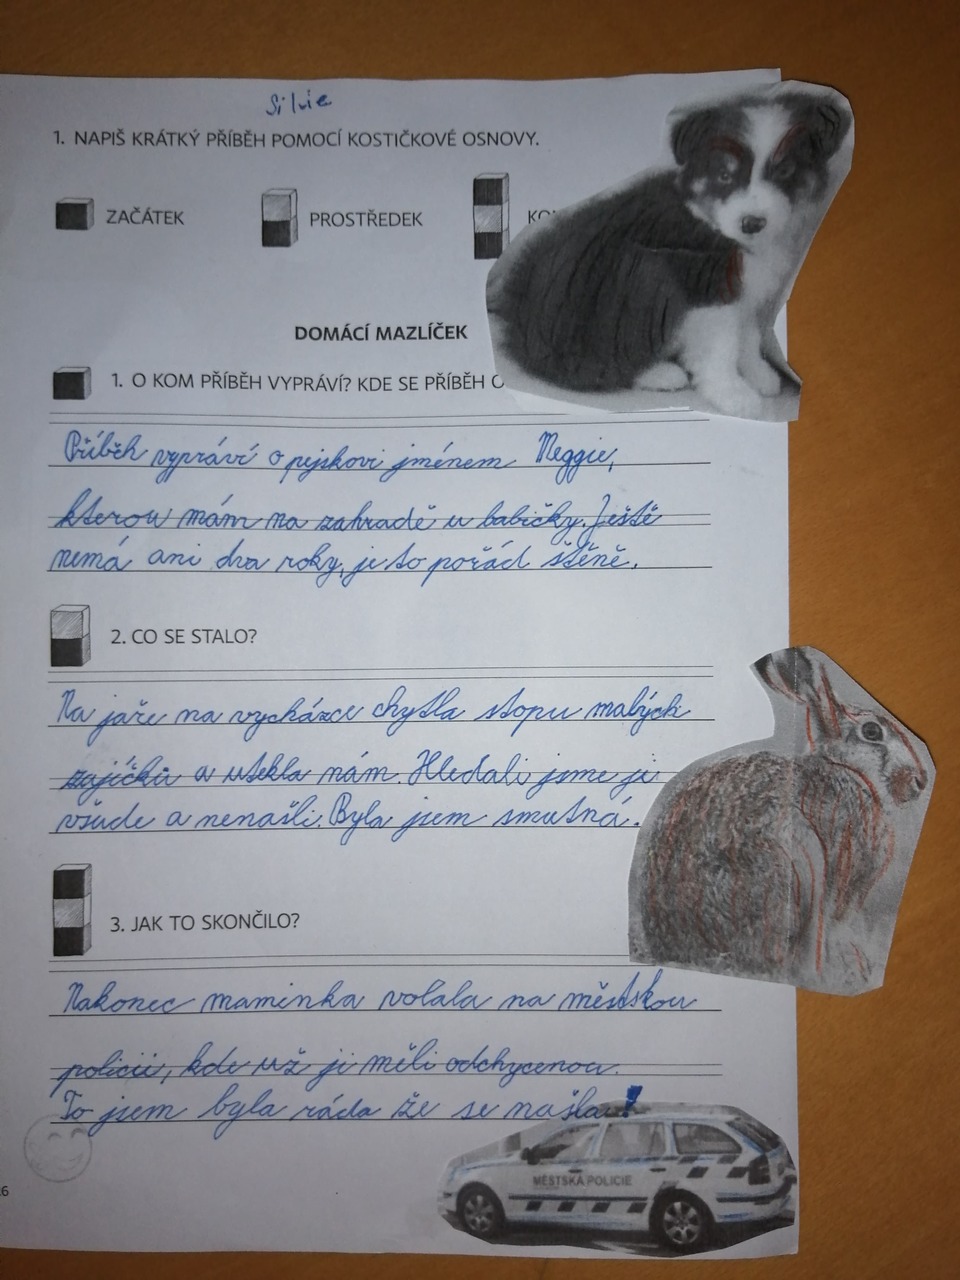 Silvie
1. NAPIŠ KRÁTKÝ PŘÍBĚH POMOCÍ KOSTIČKOVÉ OSNOVY.
ZAČÁTEK PROSTŘEDEK
DOMÁCÍ MAZLÍČEK
1. O KOM PŘÍBĚH VYPRÁVÍ? KDE SE PŘÍBĚH O
Příběh vypráví o pejskovi jménem Meggie,
kterou mám na zahradě u babičky. Ještě
nemá ani dva roky, je to pořád štěně.
2. CO SE STALO?
Na jaře na vycházce chytla stopu malých
zajíčků a utekla nám. Hledali jsme ji
všude a nenašli. Byla jsem smutná.
3. JAK TO SKONČILO?
Nakonec maminka volala na městskou
policii, kde už ji měli odchycenou.
To jsem byla ráda že se našla!
MĚSTSKÁ POLICIE
26